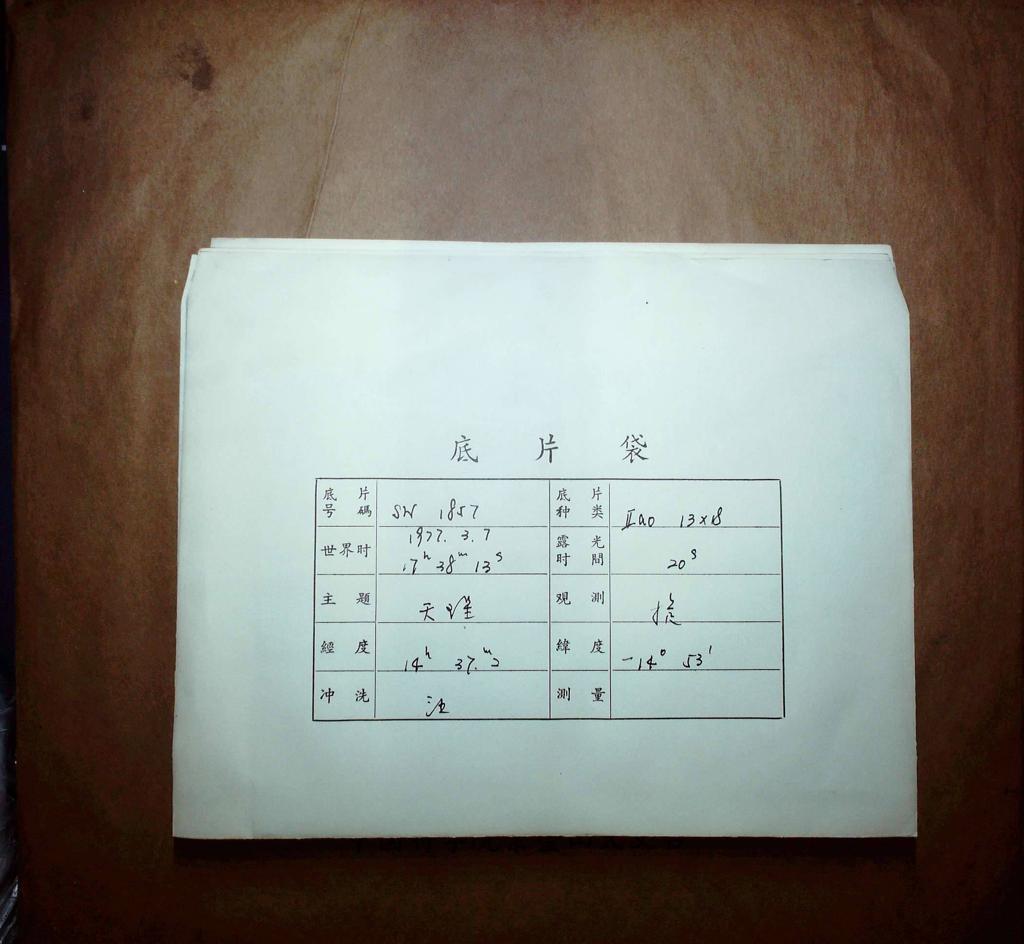 底片袋
底片号碼 SW 1857 底片种类 IIaO 13×18
世界时 1977. 3. 7 17h 38m 13s 露光时間 20s
主題 天瑾 观測
經度 14h 37.m2 緯度 -14° 53′
冲洗 測量